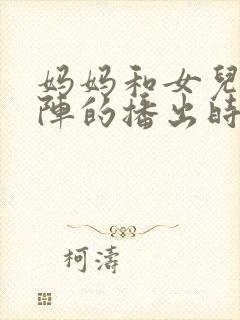 妈妈和女兒
陣的播出時
柯濤